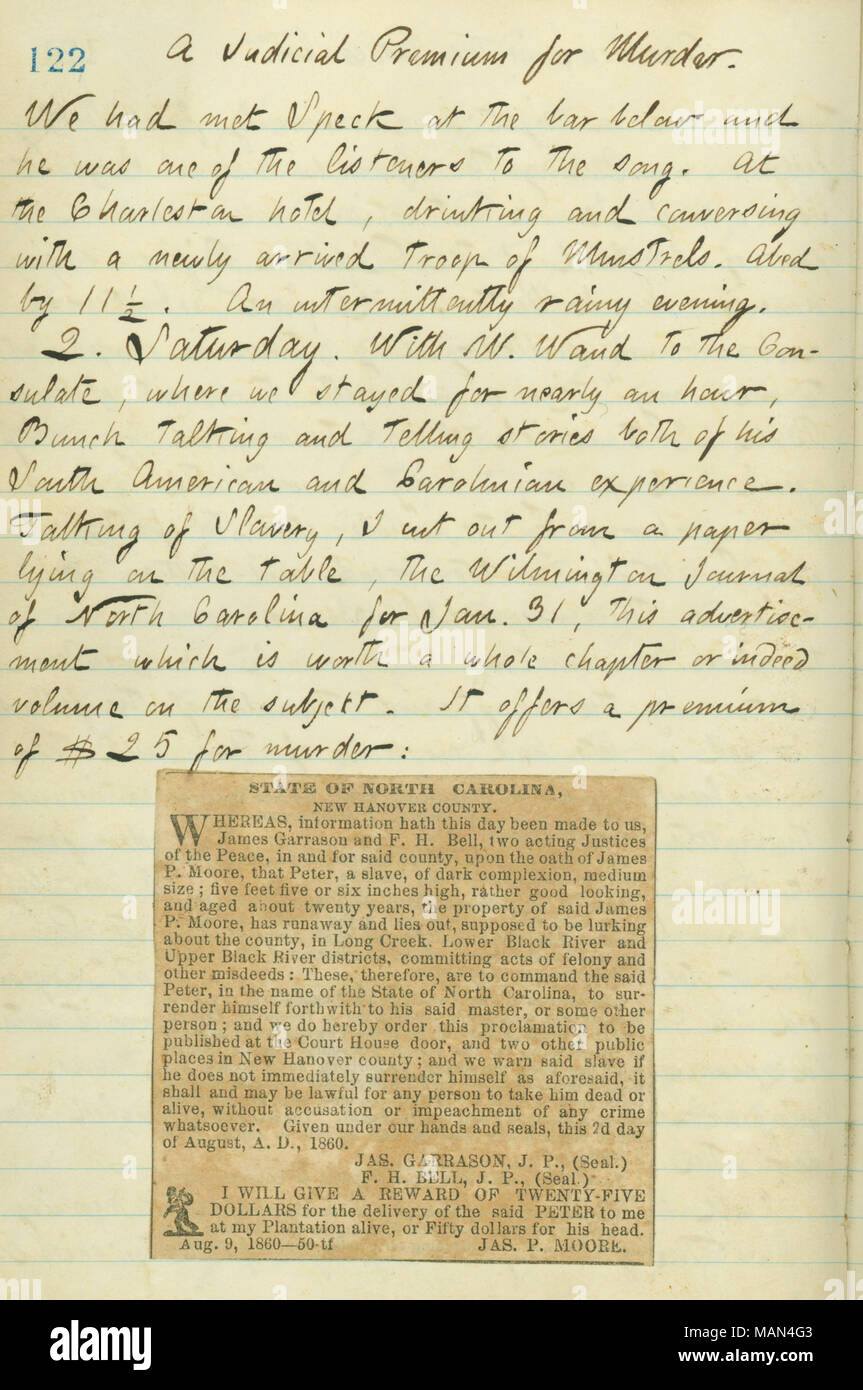 122 A Judicial Premium for Murder.
We had met Speck at the bar below and
he was one of the listeners to the song. At
the Charleston hotel, drinking and conversing
with a newly arrived troop of Minstrels. Abed
by 11 ½. An intermittently rainy evening.
2. Saturday. With W. Waud to the Con-
sulate, where we stayed for nearly an hour,
Bunch talking and telling stories both of his
South American and Carolinian experience.
Talking of Slavery, I cut out from a paper
lying on the table, the Wilmington Journal
of North Carolina for Jan. 31, this advertise-
ment which is worth a whole chapter or indeed
volume on the subject. It offers a premium
of $25 for murder:
STATE OF NORTH CAROLINA,
NEW HANOVER COUNTY.
WHEREAS, information hath this day been made to us,
James Garrason and F. H. Bell, two acting Justices
of the Peace, in and for said county, upon the oath of James
P. Moore, that Peter, a slave, of dark complexion, medium
size; five feet five or six inches high, rather good looking,
and aged about twenty years, the property of said James
P. Moore, has runaway and lies out, supposed to be lurking
about the county, in Long Creek, Lower Black River and
Upper Black River districts, committing acts of felony and
other misdeeds: These, therefore, are to command the said
Peter, in the name of the State of North Carolina, to sur-
render himself forthwith to his said master, or some other
person; and we do hereby order this proclamation to be
published at the Court House door, and two other public
places in New Hanover county; and we warn said slave if
he does not immediately surrender himself as aforesaid, it
shall and may be lawful for any person to take him dead or
alive, without accusation or impeachment of any crime
whatsoever. Given under our hands and seals, this 2d day
of August, A. D., 1860.
JAS. GARRASON, J. P., (Seal.)
F. H. BELL, J. P., (Seal.)
I WILL GIVE A REWARD OF TWENTY-FIVE
DOLLARS for the delivery of the said PETER to me
at my Plantation alive, or Fifty dollars for his head.
Aug. 9, 1860—50-tf JAS. P. MOORE.
alamy
Image ID: MAN4G3
www.alamy.com